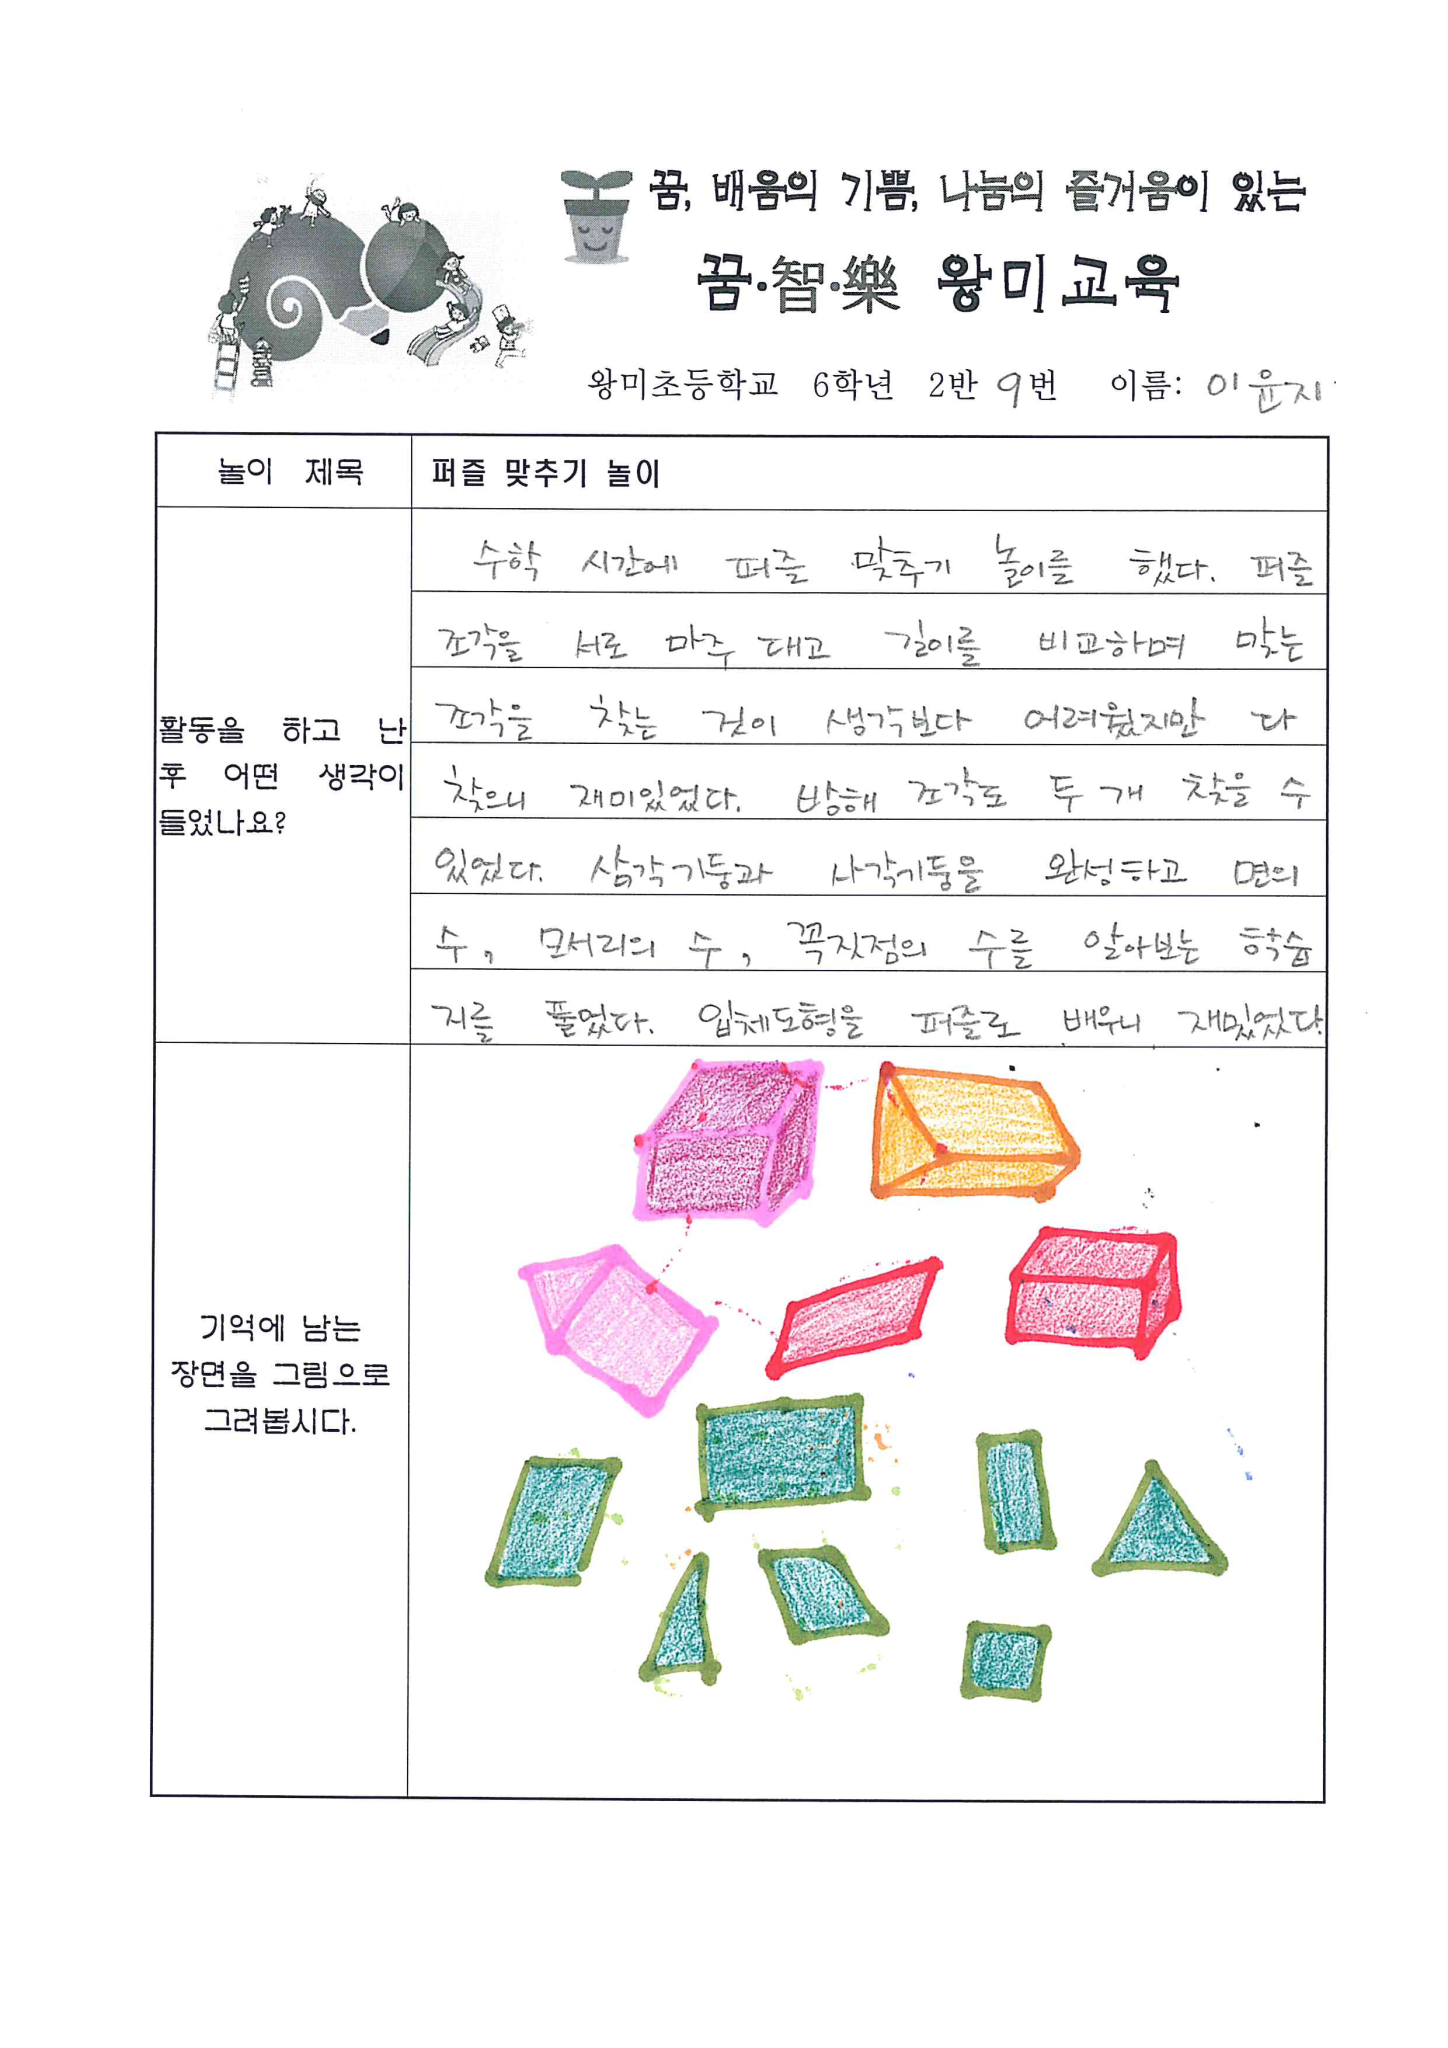 꿈, 배움의 기쁨, 나눔의 즐거움이 있는
꿈·智·樂 왕미교육
왕미초등학교 6학년 2반 9번 이름: 이윤지
놀이 제목
퍼즐 맞추기 놀이
활동을 하고 난
후 어떤 생각이
들었나요?
수학 시간에 퍼즐 맞추기 놀이를 했다. 퍼즐
조각을 서로 마주 대고 길이를 비교하며 맞는
조각을 찾는 것이 생각보다 어려웠지만 다
찾으니 재미있었다. 방해 조각도 두 개 찾을 수
있었다. 삼각기둥과 사각기둥을 완성하고 면의
수, 모서리의 수, 꼭짓점의 수를 알아보는 학습
지를 풀었다. 입체도형을 퍼즐로 배우니 재밌었다.
기억에 남는
장면을 그림으로
그려봅시다.